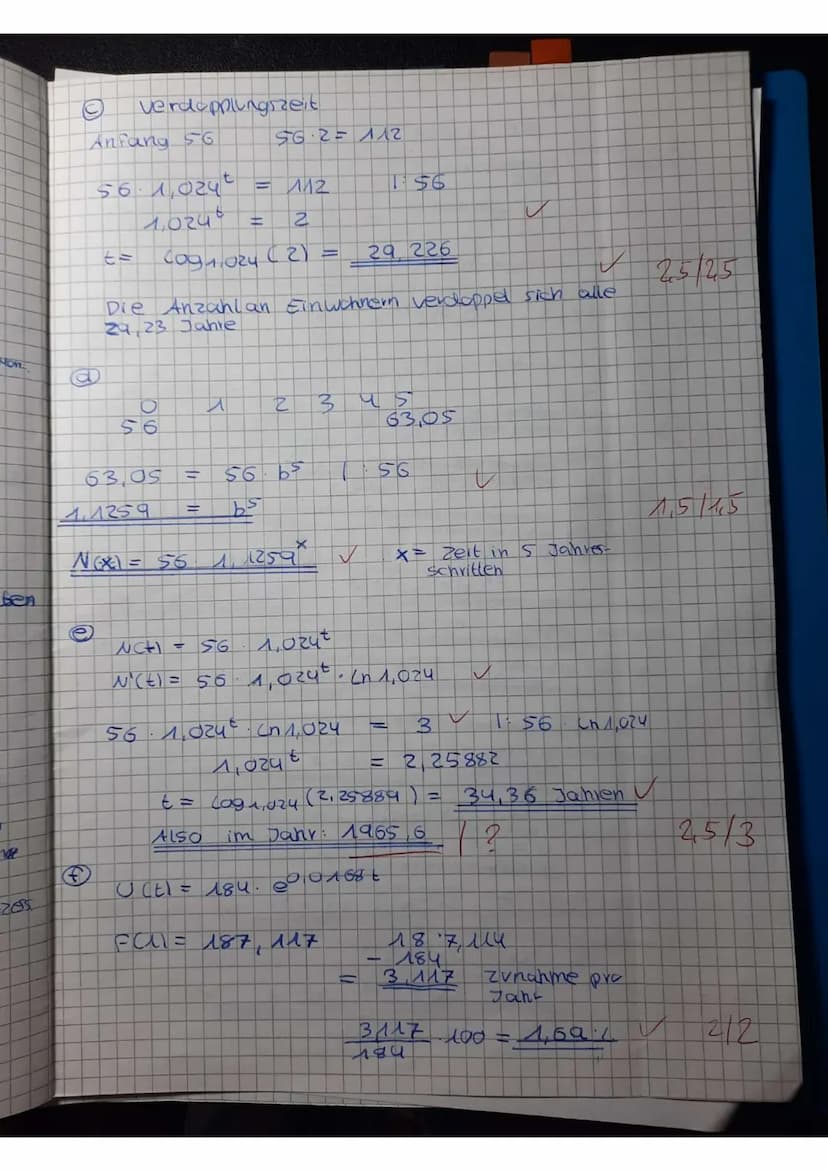 c) Verdopplungszeit
Anfang 56 56·2 = 112
56 · 1,024^t = 112 |: 56
1,024^t = 2 ✓
t = log1,024 (2) = 29,226 ✓
2,5/2,5
Die Anzahl an Einwohnern verdoppel sich alle
29,23 Jahre
d)
0 1 2 3 4 5
56 63,05
63,05 = 56 · b^5 |: 56 ✓
1,1259 = b^5 1,5/1,5
N(x) = 56 1,1259^x ✓ x = Zeit in 5 Jahres-
schritten
e) N(t) = 56 · 1,024^t
N'(t) = 56 · 1,024^t · ln 1,024 ✓
56 · 1,024^t · ln 1,024 = 3 ✓ |: 56 · ln 1,024
1,024^t = 2,25882
t = log1,024 (2,25884) = 34,36 Jahren ✓
Also im Jahr: 1965,6 | ? 2,5/3
f) U(t) = 184 · e^0,0168t
F(1) = 187,117 18 7,117
- 184
= 3,117 Zunahme pro
Jahr
3,117/184 · 100 = 1,69 % ✓ 2/2